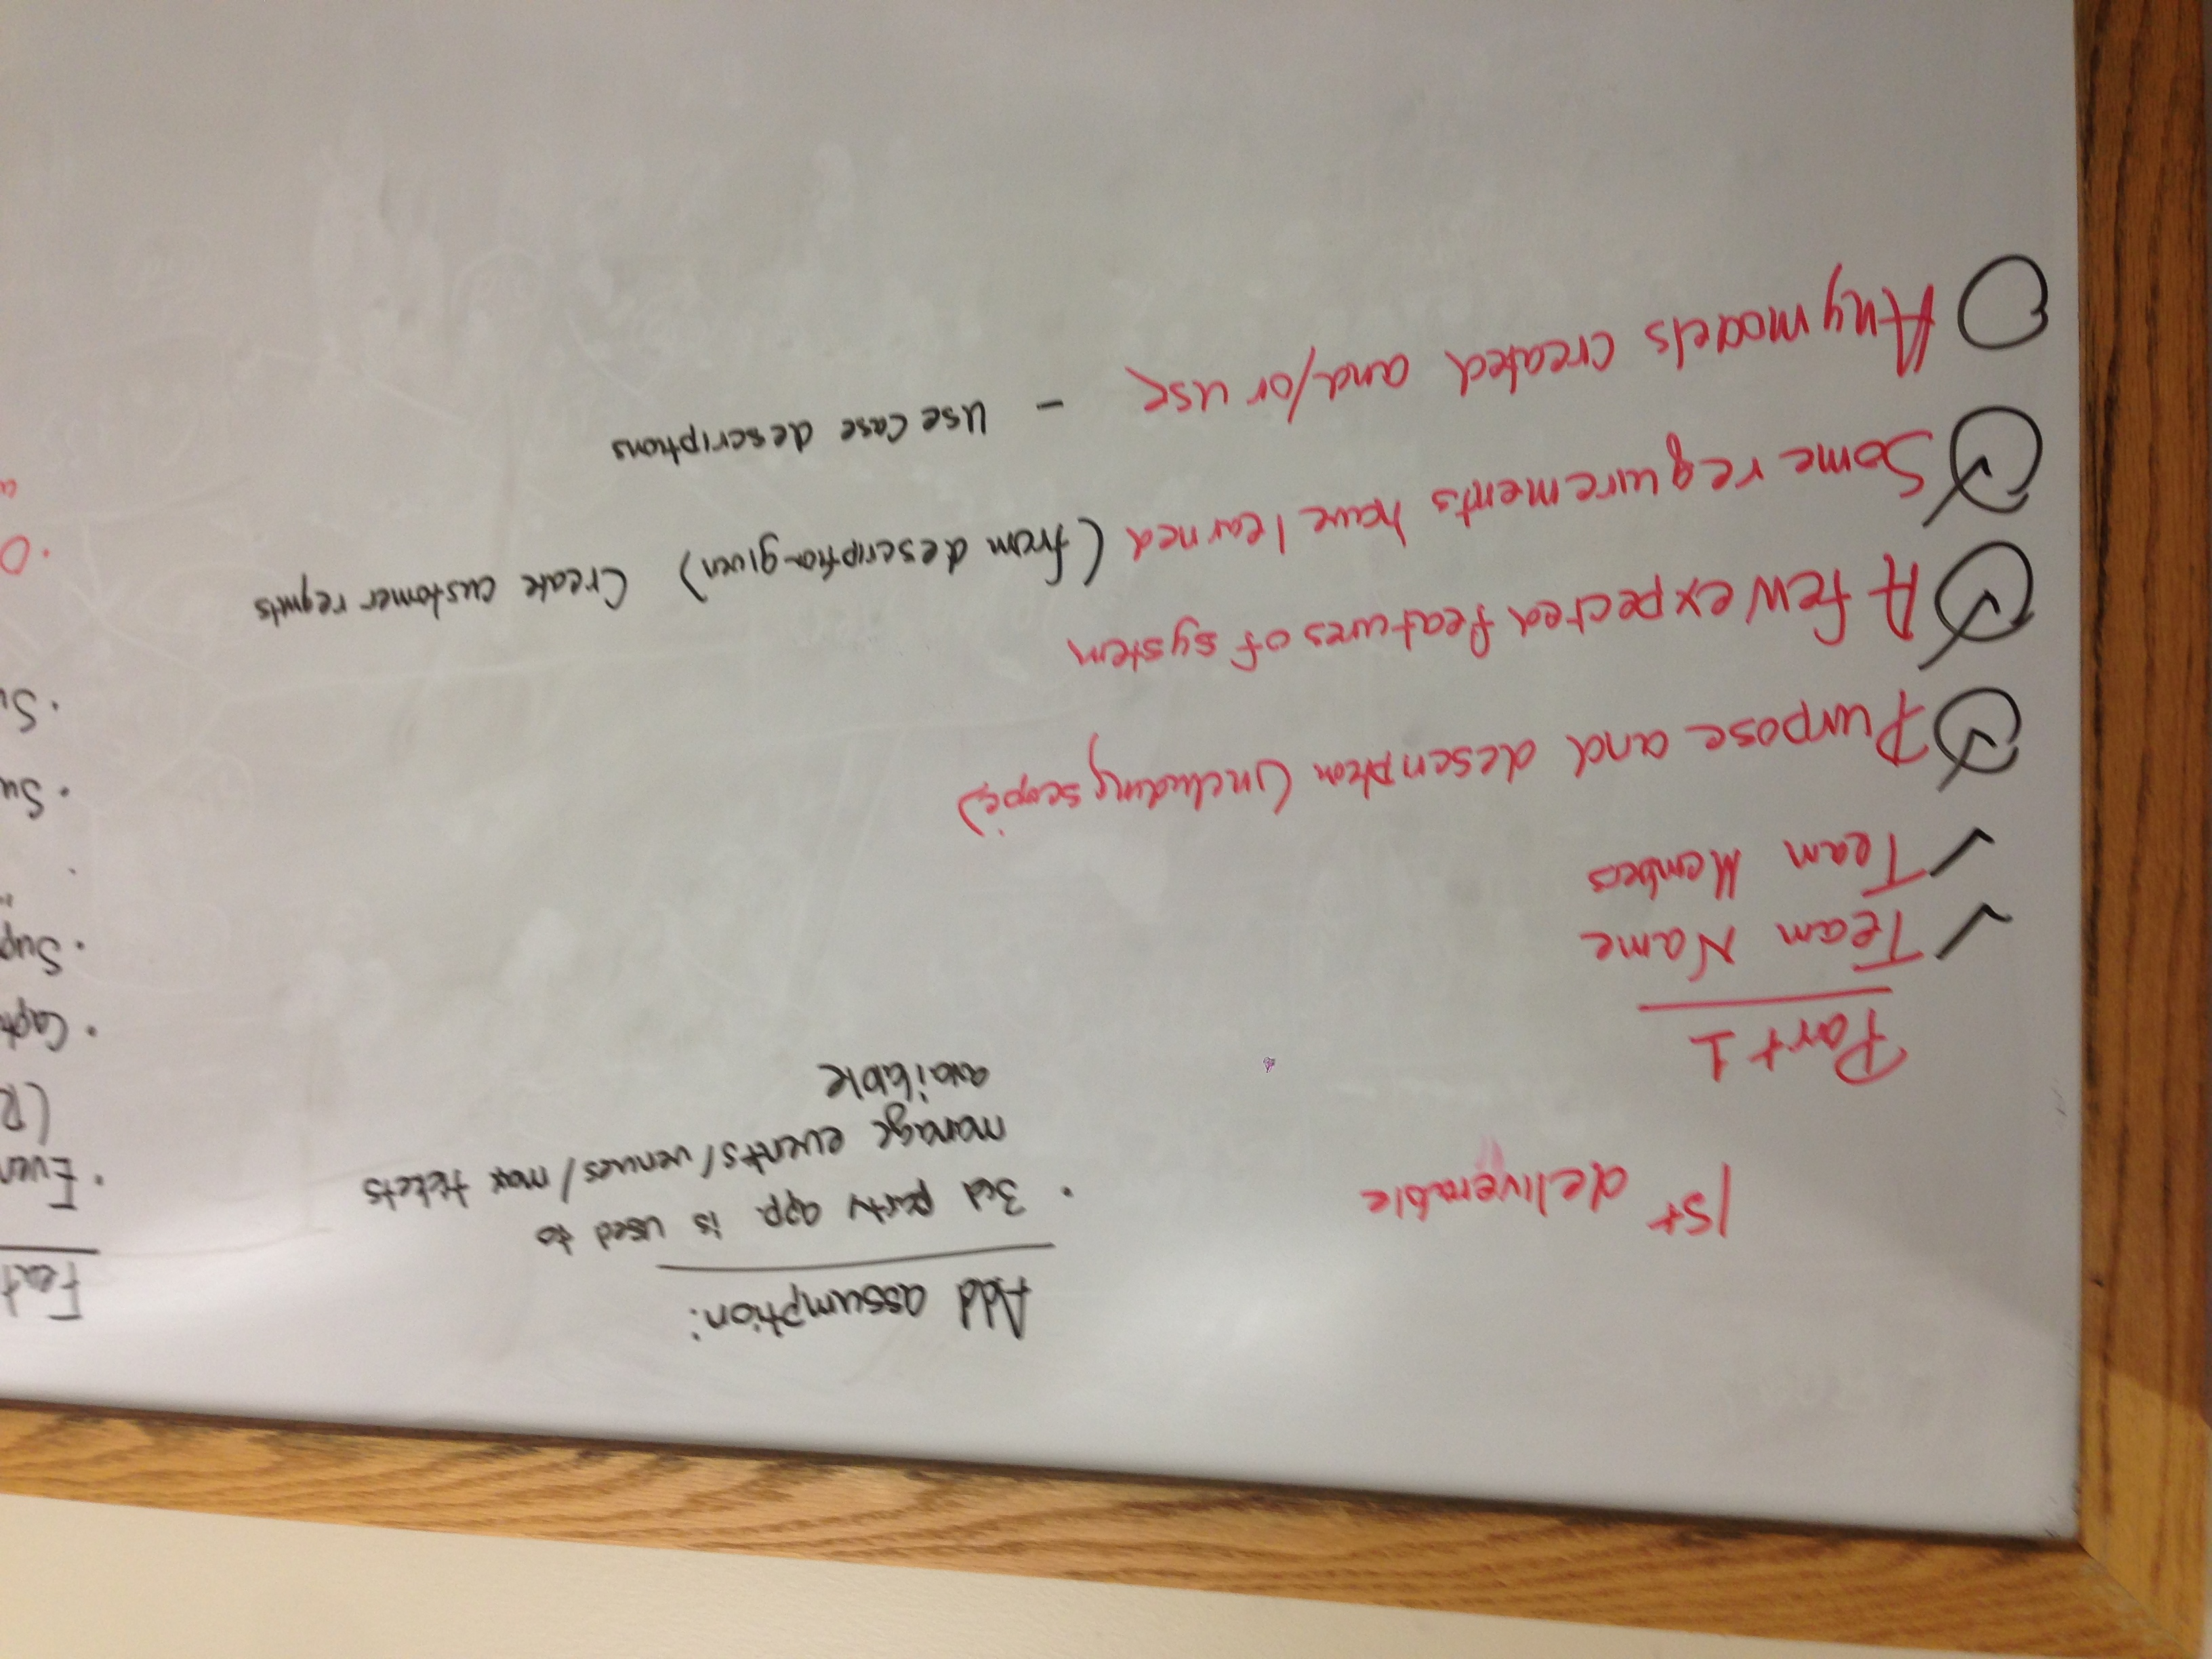 1st deliverable
Part 1
Team Name
Team Members
Purpose and description (including scope)
A few expected features of system
Some requirements have learned (from description given) Create customer reqmts
Any models created and/or use - Use Case descriptions
Add assumption:
• 3rd party app. is used to
manage events/venues/max tickets
available
Feat
• Even
(R
• Capt
• Sup
• Su
• Su